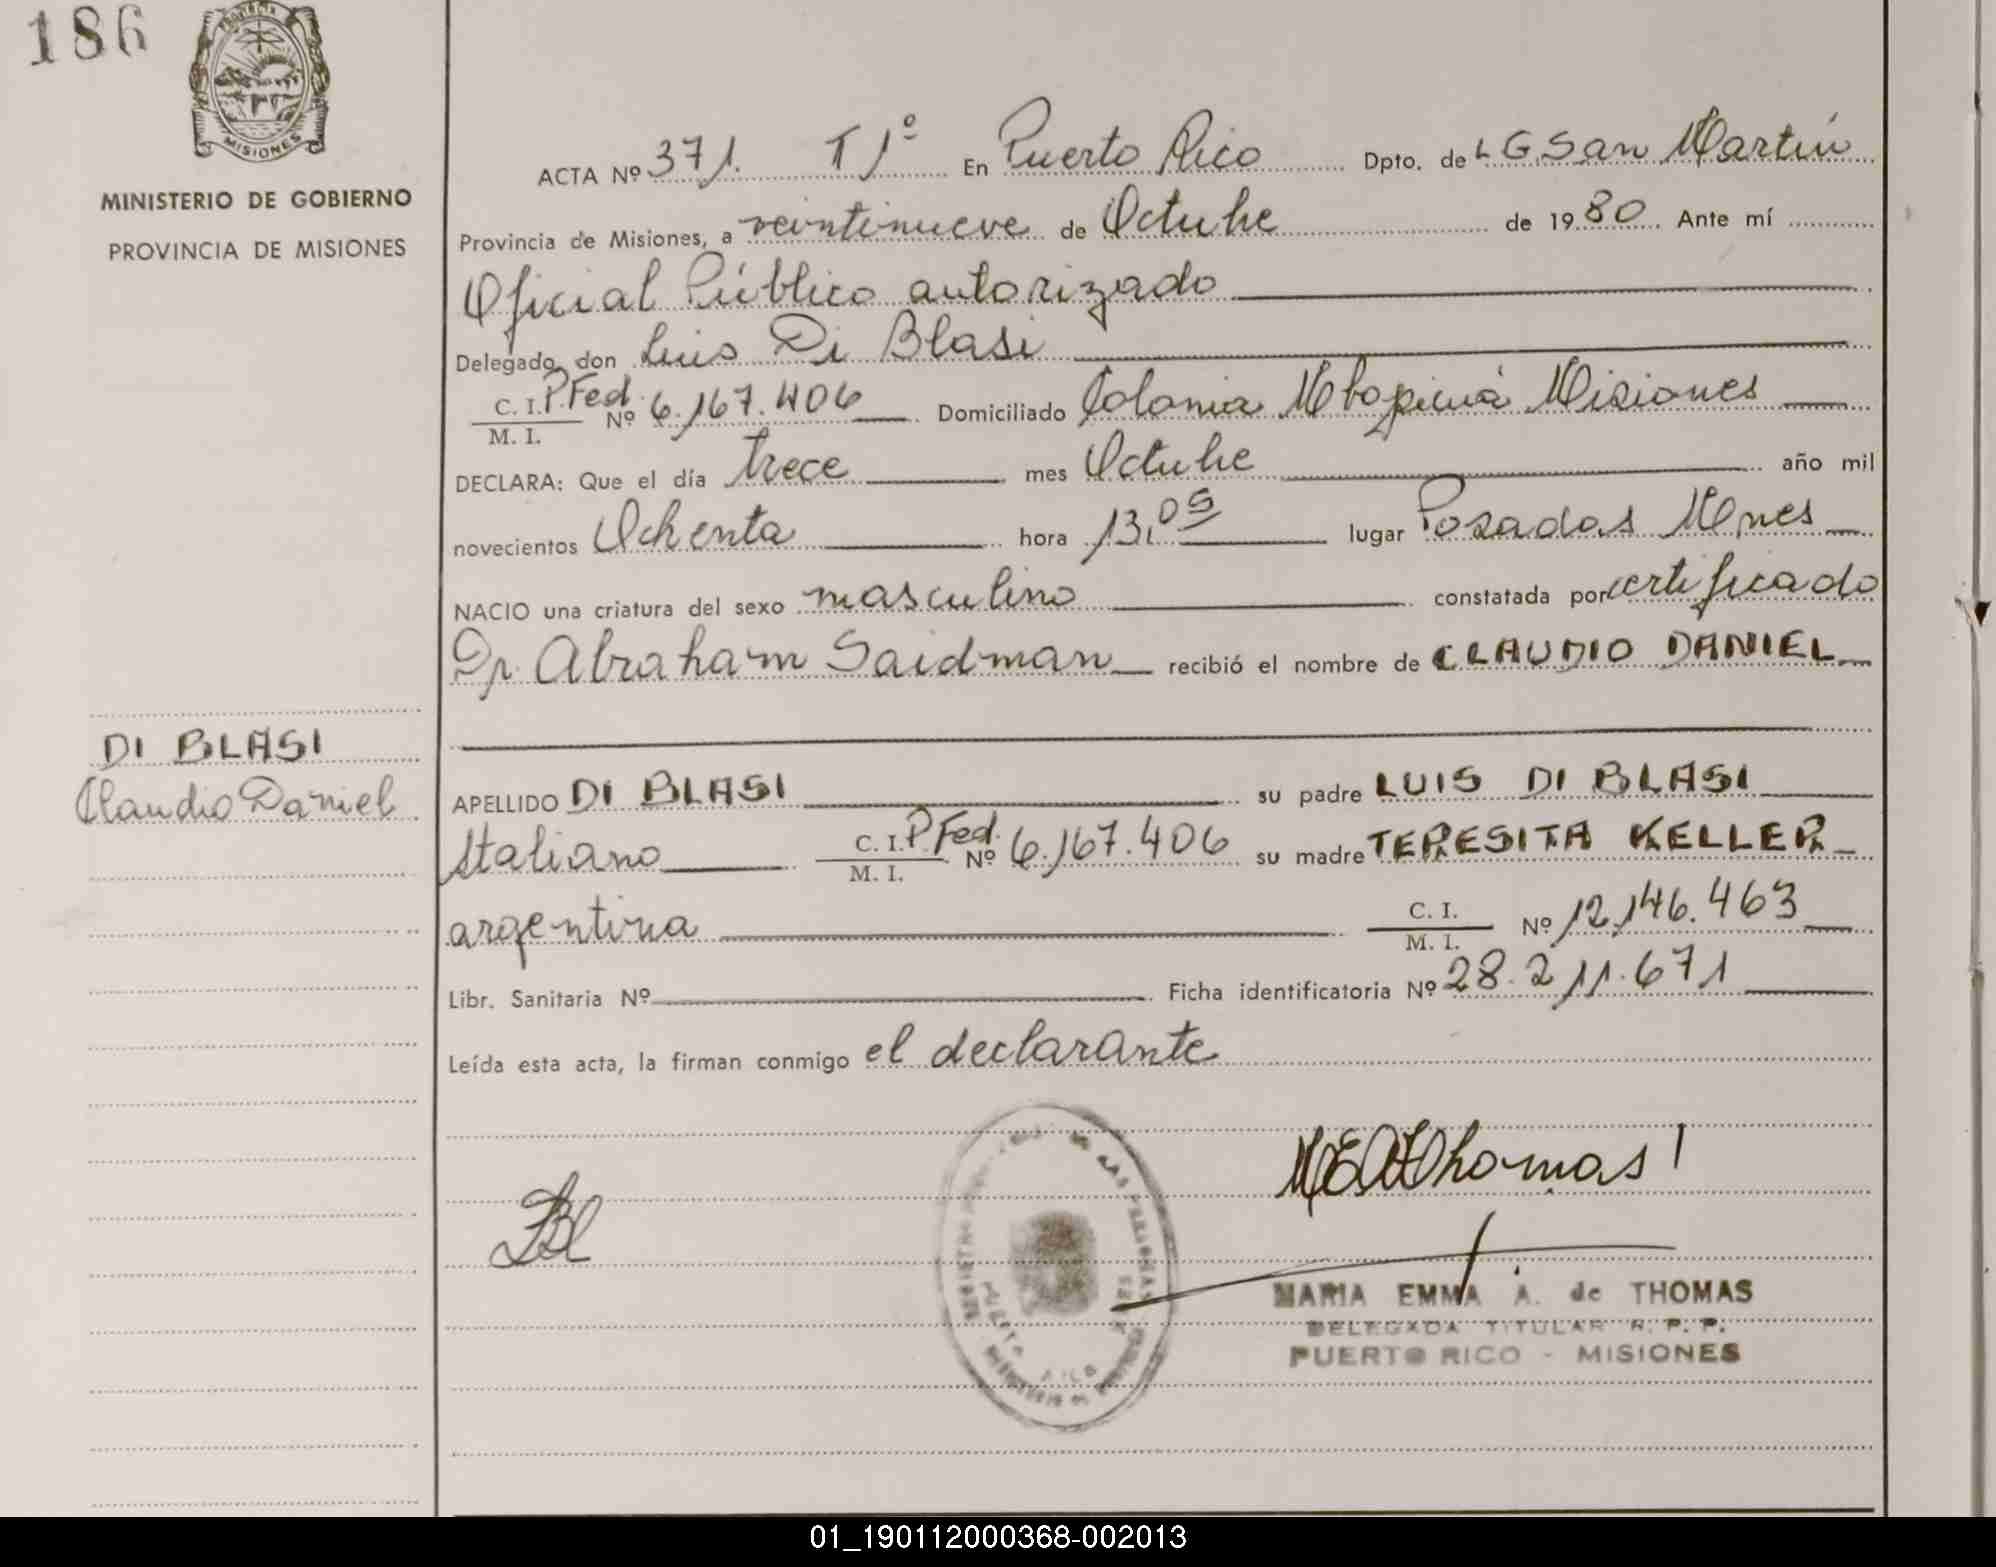 186
MISIONES
MINISTERIO DE GOBIERNO
PROVINCIA DE MISIONES
ACTA Nº 371. T 1º En Puerto Rico Dpto. de L G. San Martín
Provincia de Misiones, a veintinueve de Octubre de 1980. Ante mí
Oficial Público autorizado
Delegado don Luis Di Blasi
C. I. P. Fed. Nº 6.167.406 Domiciliado Colonia Mbopicuá Misiones
M. I.
DECLARA: Que el día trece mes Octubre año mil
novecientos Ochenta hora 13,05 lugar Posadas Mnes
NACIO una criatura del sexo masculino constatada por certificado
Dr. Abraham Saidman recibió el nombre de CLAUDIO DANIEL
DI BLASI
Claudio Daniel
APELLIDO DI BLASI su padre LUIS DI BLASI
Italiano C. I. P. Fed. Nº 6.167.406 su madre TERESITA KELLER
M. I.
argentina C. I. Nº 12.146.463
M. I.
Libr. Sanitaria Nº Ficha identificatoria Nº 28.211.671
Leída esta acta, la firman conmigo el declarante
MEAThomas
MARIA EMMA A. de THOMAS
DELEGADA TITULAR R. P. P.
PUERTO RICO - MISIONES
01_190112000368-002013